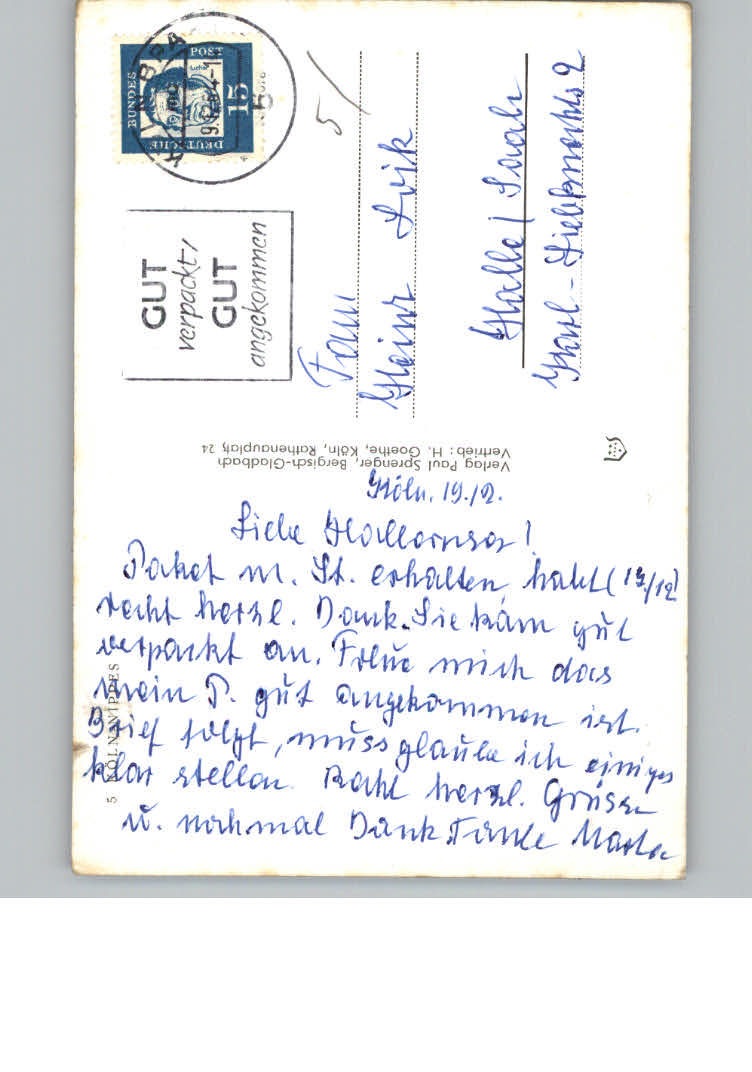 DEUTSCHE
BUNDES
POST
15
KÖLN
GUT
verpackt,
GUT
angekommen
5/
Frau
Heinz
Halle / Saale
Karl-Liebknechtstr 2
Verlag Paul Sprenger, Bergisch-Gladbach
Vertrieb: H. Goethe, Köln, Rathenauplatz 24
5 KÖLN-NIPPES
Köln. 19./2.
Liebe Hallenser!
Paket m. St. erhalten, habt (19/12)
recht herzl. Dank. Sie kam gut
verpackt an. Freue mich das
mein P. gut angekommen ist.
Brief folgt, muss glaube ich einiges
klar stellen. Recht herzl. Grüsse
u. nochmal Dank Tante Martha